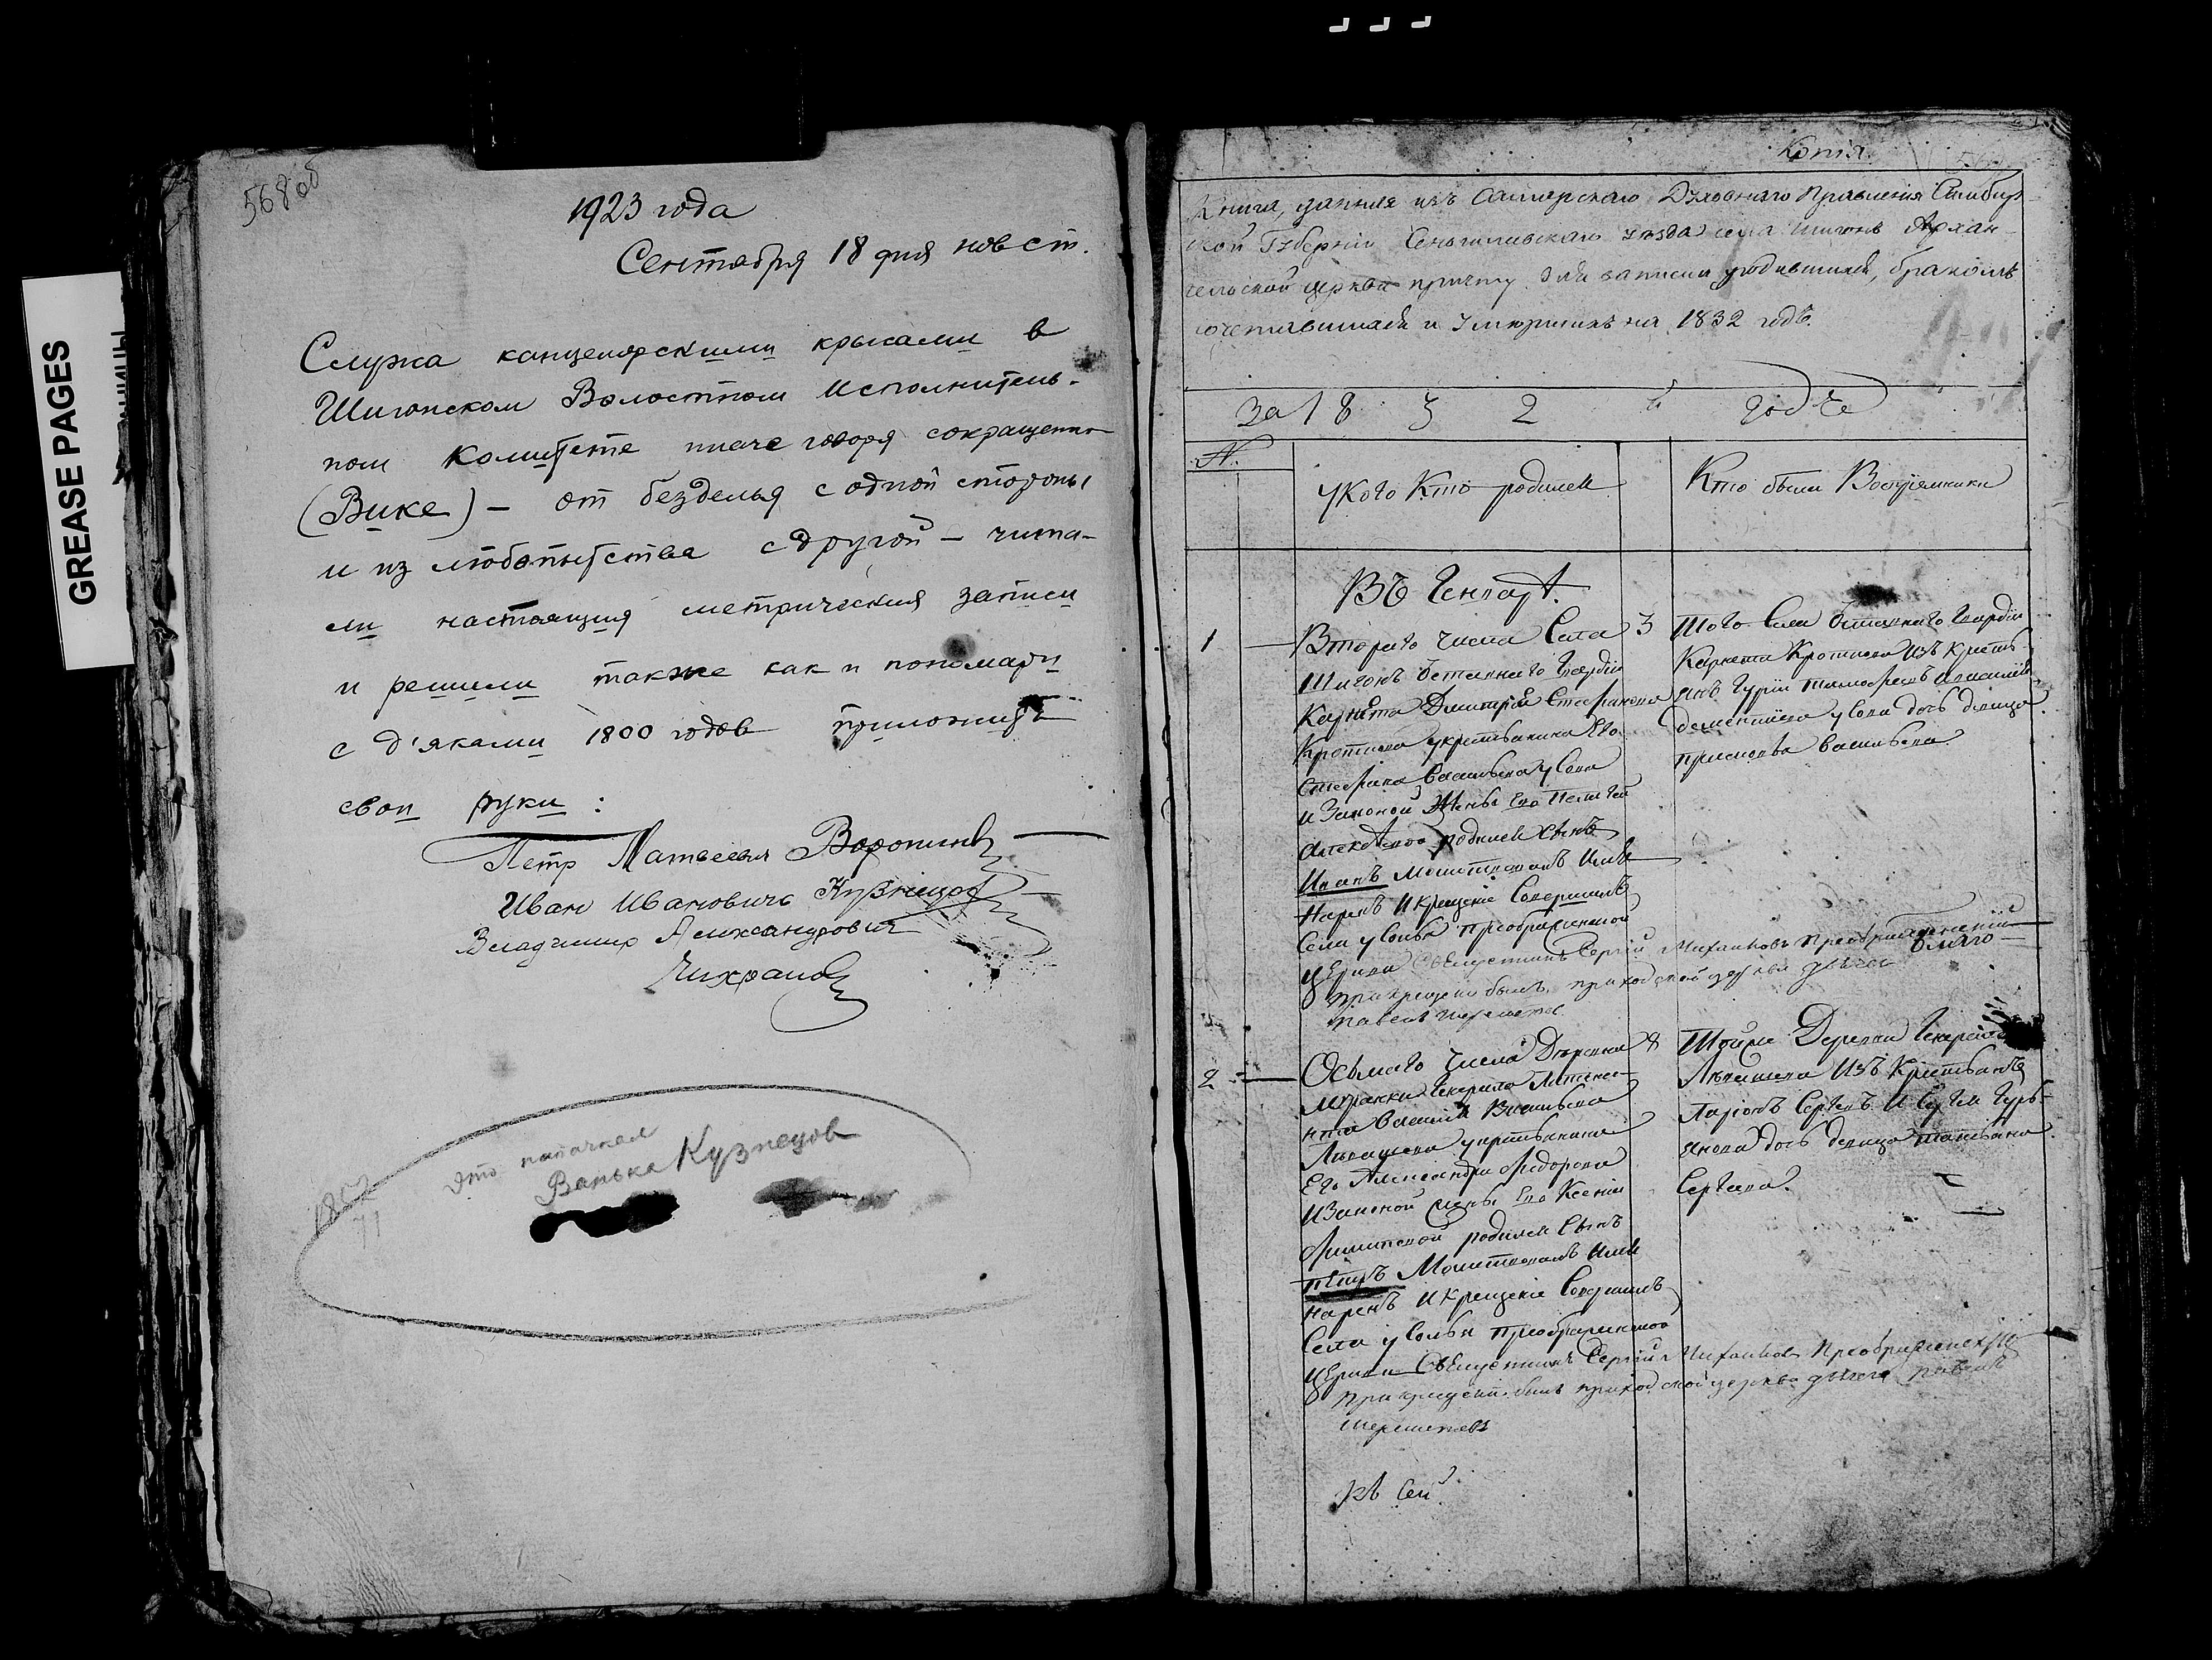 GREASE PAGES
568 об
1923 года
Сентября 18 дня нов ст.
Служа канцелярскими крысами в
Шигонском Волостном Исполнитель-
ном Комитете иначе говоря сокращенно
(Вике) – от безделья с одной стороны
и из любопытства с другой – чита-
ли настоящия метрическия записи
и решили также как и пономари
с д'яками 1800 годов приложить
свои руки:
Петр Матвеевич Воронин
Иван Иванович Кузнецов
Владимир Александрович
Чихранов
Это напачкал
Ванька Кузнецов
1852
71
Копія.
Книга, данная изъ Самарскаго Духовнаго Правленія Симбир-
ской Губерніи Сенгилѣевскаго уѣзда села Шигонъ Архан-
гельской церкви причту для записки родившихся, бракомъ
сочетавшихся и умершихъ на 1832 годъ.
За 1832 й годъ
№.
У Кого Кто родился
Кто были Воспріемники
Въ Генварѣ.
1
Втораго числа Села
3
Шигонъ Отставнаго Гвардіи
Корнета Дмитрія Стефанова
Кроткова у крестьянина Его
Стефана Васильева у Сола
и Законой Жены Его
родился сынъ
Иванъ Молитвовалъ Имя
Нарекъ И Крещеніе Совершалъ
Села Усолья Преображенской
церкви Священникъ Сергій Михайловъ Преображенскій
при крещеніи былъ приходской церкви дьячекъ
Павелъ Шереметев
Того Села Отставнаго Гвардіи
Корнета Кроткова Изъ Кресть-
янъ
дочь дѣвица
Васильева.
2
Осьмаго Числа Деревни
8
Муранки Генерала Лѣтена-
нта Василія Васильева
Левашева у крестьянина
Его Александра Федорова
И Законой жены Его Ксеніи
родился Сынъ
Петръ Молитвовалъ Имя
нарекъ И Крещеніе Совершалъ
Села Усолья Преображенской
церкви Священникъ Сергій Михайловъ Преображенскій
при крещеніи былъ приходской церкви дьячекъ Павелъ
Шереметевъ
Тойже Деревни Генерала
Левашева Изъ Крестьянъ
дочь девица Татьяна
Сергѣева.
Къ Сей